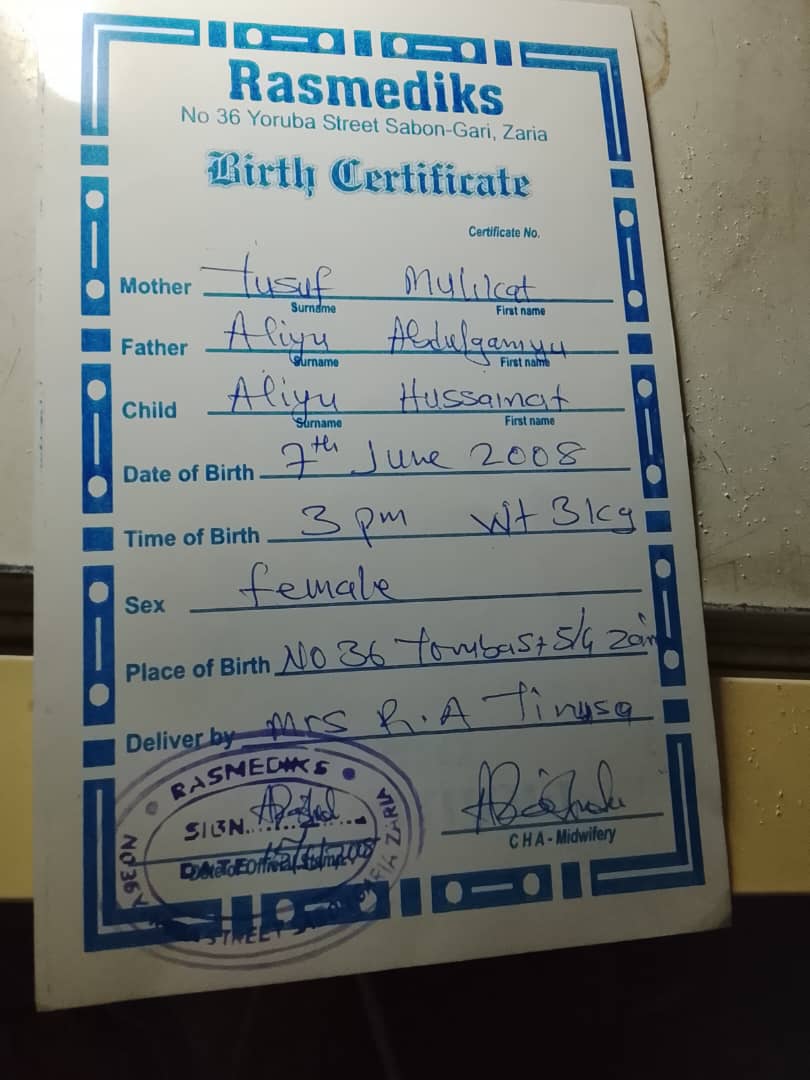 Rasmediks
No 36 Yoruba Street Sabon-Gari, Zaria
Birth Certificate
Certificate No.
Mother Yusuf Mulikat
Surname First name
Father Aliyu Abdulganiyu
Surname First name
Child Aliyu Hussainat
Surname First name
Date of Birth 7th June 2008
Time of Birth 3 pm Wt 3kg
Sex female
Place of Birth NO 36 Yoruba St S/G
Deliver by Mrs R.A
RASMEDIKS
SIGN
DATE
Official Stamp
NO36
STREET
CHA - Midwifery